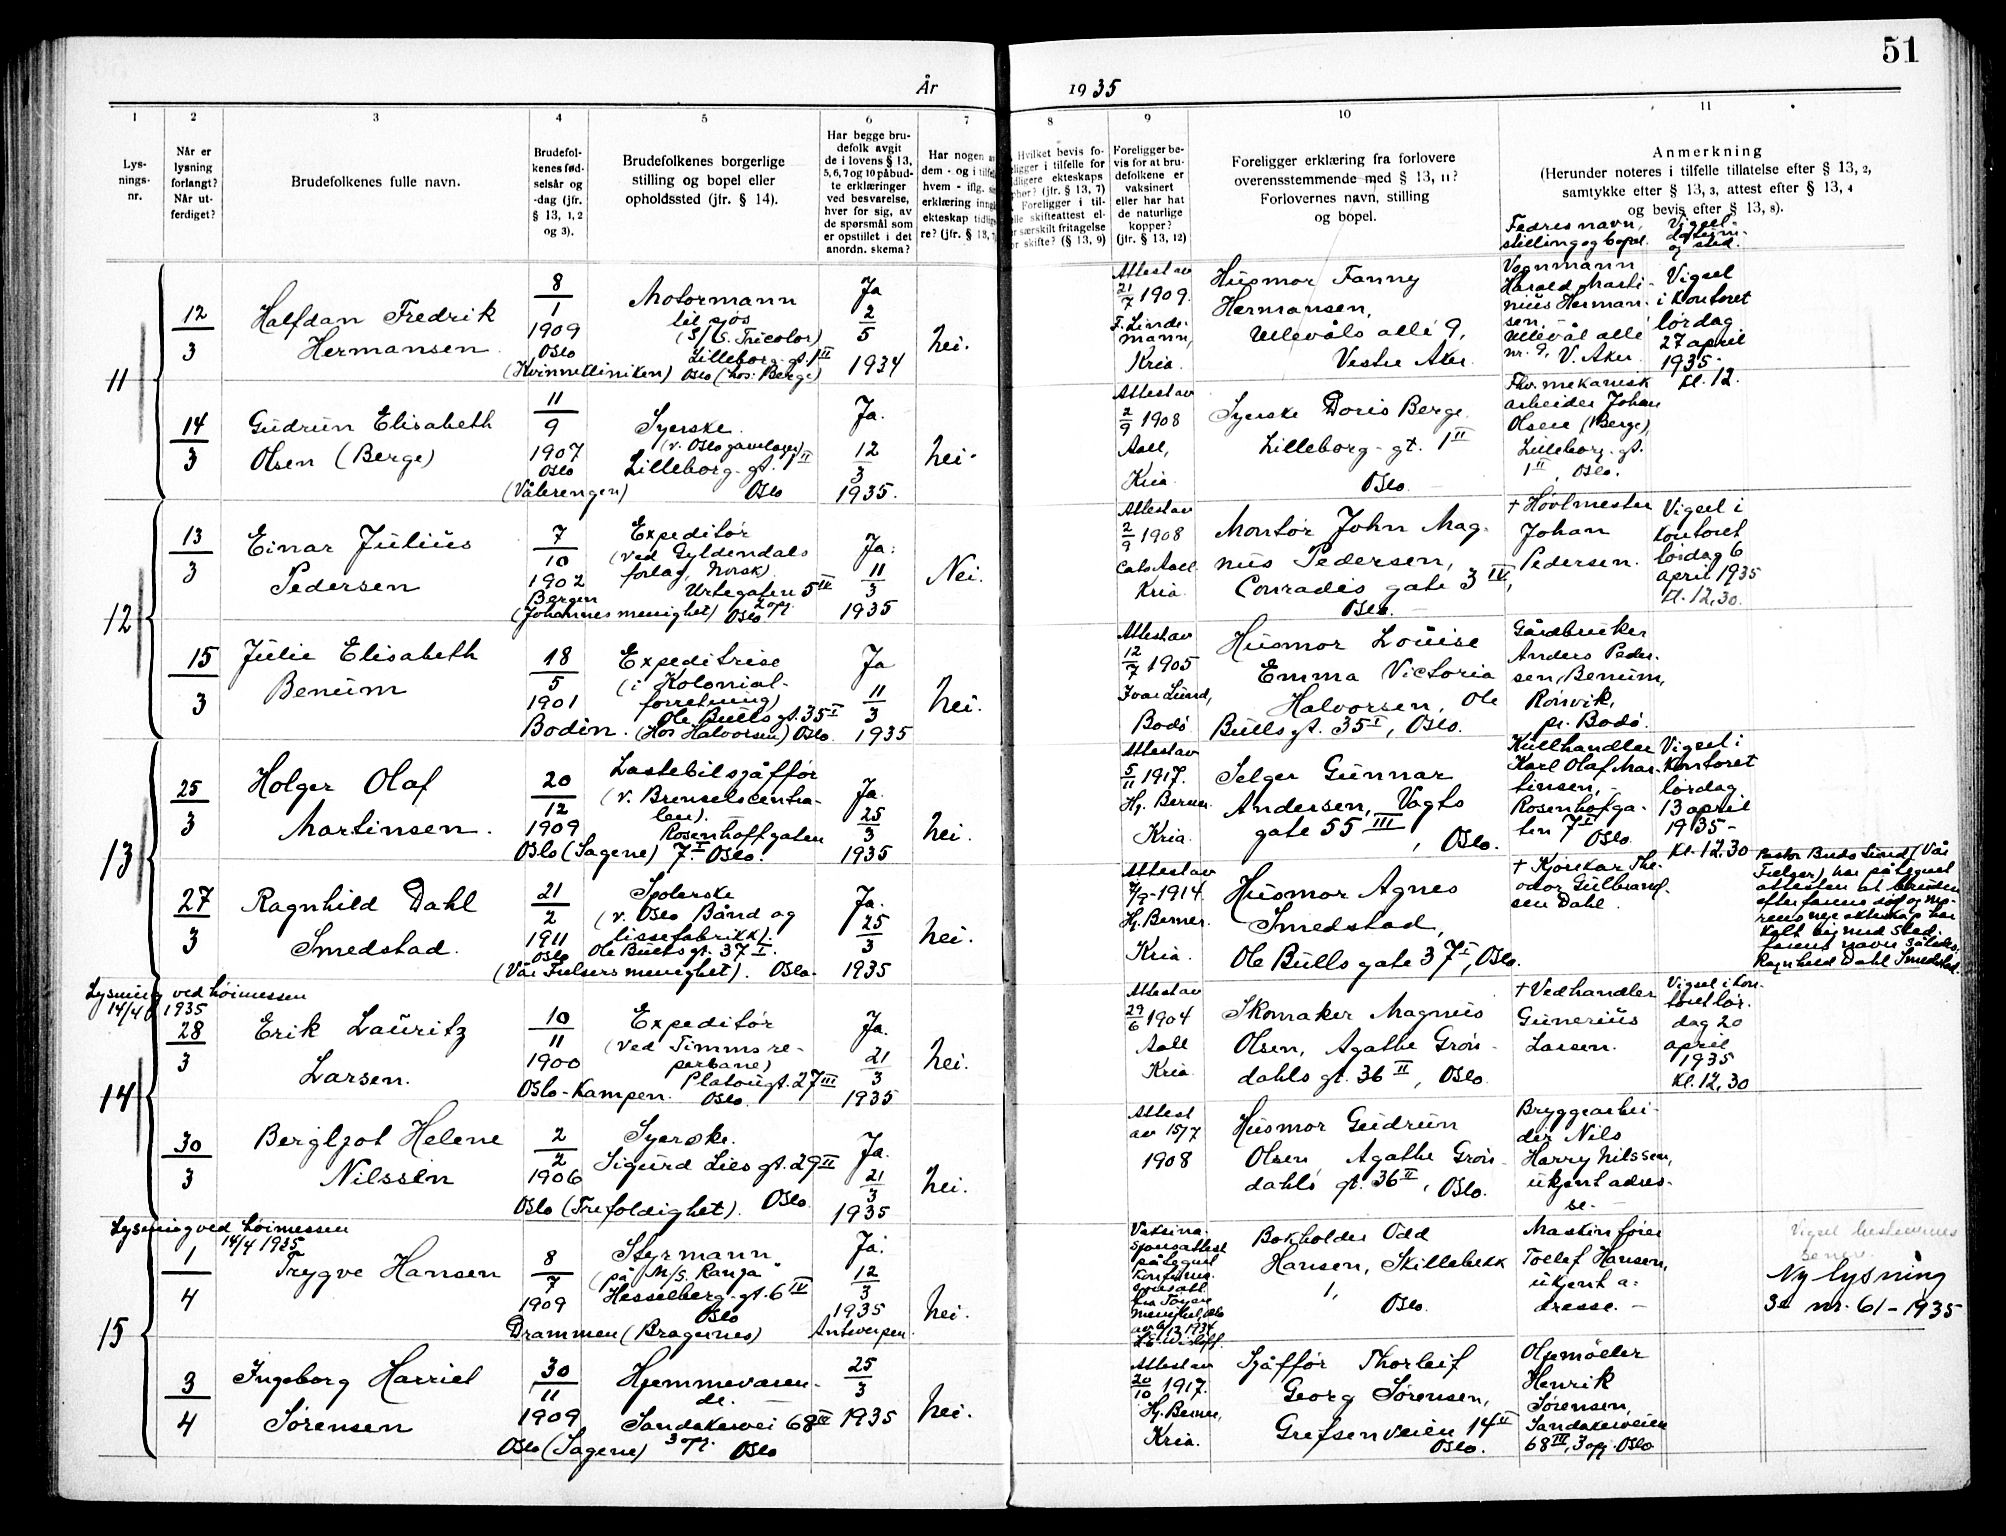 51
År 1935
1
Lys-
nings-
nr.
2
Når er
lysning
forlangt?
Når ut-
ferdiget?
3
Brudefolkenes fulle navn.
4
Brudefol-
kenes fød-
selsår og
-dag (jfr.
§ 13, 1, 2
og 3).
5
Brudefolkenes borgerlige
stilling og bopel eller
opholdssted (jfr. § 14).
6
Har begge bru-
defolk avgit
de i lovens § 13,
5, 6, 7 og 10 påbud-
te erklæringer
ved besvarelse,
hver for sig, av
de spørsmål som
er opstillet i det
anordn. skema?
7
Har nogen av
dem - og i tilfelle
hvem - iflg. sin
erklæring inngått
ekteskap tidlige-
re? (jfr. § 13, 7)
8
Hvilket bevis fo-
religger i tilfelle for
tidligere ekteskaps
ophør? (jfr. § 13, 7)
Foreligger i til-
felle skifteattest el-
ler særskilt fritagelse
for skifte? (§ 13, 9)
9
Foreligger be-
vis for at bru-
defolkene er
vaksinert
eller har hat
de naturlige
kopper?
(jfr. § 13, 12)
10
Foreligger erklæring fra forlovere
overensstemmende med § 13, 11?
Forlovernes navn, stilling
og bopel.
11
Anmerkning
(Herunder noteres i tilfelle tillatelse efter § 13, 2,
samtykke efter § 13, 3, attest efter § 13, 4
og bevis efter § 13, 8).
Fedres navn,
stilling og bopel.
Vigsel-
datum
og sted.
11
12
3
Halfdan Fredrik
Hermansen
8
1
1909
Oslo
(Kvinneklinikken)
Motormann
til sjøs
(S/S. Tricolor)
Lilleborg. gt. 1 II
Oslo (hos Berge)
Ja
2
5
1934
Nei.
Attest av
21
7 1909.
F. Linde-
mann,
Kria.
Husmor Fanny
Hermansen,
Ullevåls allé 9,
Vestre Aker.
Vognmann
Harald Marti-
nius Herman-
sen,
Ullevål allé
nr. 9, V. Aker.
Vigsel
i kontoret
lørdag
27 april
1935.
kl. 12.
14
3
Gudrun Elisabeth
Olsen (Berge)
11
9
1907
Oslo
(Vålerengen)
Syerske.
(v. Oslo gavelager)
Lilleborg. gt. 1 II
Oslo
Ja.
12
3
1935.
Nei.
Attest av
2
9 1908
Aall,
Kria.
Syerske Doris Berge
Lilleborg. gt. 1 II
Oslo.
Fhv. mekanisk
arbeider Johan
Olsen (Berge),
Lilleborg. gt.
1 II, Oslo.
12
13
3
Einar Julius
Pedersen
7
10
1902
Bergen
(Johannes menighet)
Expeditør
(ved Gyldendals
forlag, Norsk)
Urtegaten 5 IV
2 opg.
Oslo
Ja.
11
3
1935
Nei.
Attest av
2
9 1908
Cato Aall
Kria.
Montør John Mag-
nus Pedersen,
Conradis gate 3 IV,
Oslo.
† Hovlmester
Johan
Pedersen.
Vigsel i
kontoret
lørdag 6
april 1935
kl. 12,30.
15
3
Julie Elisabeth
Benum
18
5
1901
Bodin.
Expeditrise
(i Kolonial-
forretning)
Ole Bulls gt. 35 I
(Hos Halvorsen) Oslo
Ja
11
3
1935
Nei.
Attest av
12
7 1905
Ivar Lund,
Bodø
Husmor Louise
Emma Victoria
Halvorsen, Ole
Bulls gt. 35 I, Oslo.
Gårdbruker
Anders Peder-
sen Benum,
Rønvik,
pr. Bodø.
13
25
3
Holger Olaf
Martinsen.
20
12
1909
Oslo (Sagene)
Lastebilsjåffør
(v. Brenselscentra-
len).
Rosenhoffgaten
7 I. Oslo.
Ja.
25
3
1935
Nei.
Attest av
5
11 1917.
Hj. Berner
Kria.
Selger Gunnar
Andersen, Vogts
gate 55 III,
Oslo.
Kullhandler
Karl Olaf Mar-
tinsen,
Rosenhofga-
ten 7 I
Oslo.
Vigsel i
kontoret
lørdag
13 april
1935-
kl. 12,30
27
3
Ragnhild Dahl
Smedstad.
21
2
1911
Oslo
(Vår Frelsers menighet).
Spolerske
(v. Oslo Bånd og
lissefabrikk)
Ole Bulls gt. 37 I.
Oslo.
Ja.
25
3
1935
Nei.
Attest av
7/9-1914.
Hj. Berner.
Kria.
Husmor Agnes
Smedstad,
Ole Bulls gate 37 I, Oslo.
† Kjørekar The-
odor Gulbrand-
sen Dahl.
Pastor Buds Lund (Vår
Frelser) har påtegnet
attesten at bruden
efter farens død og mo-
rens nye ekteskap har
kalt sig med sted-
farens navn således,
Ragnhild Dahl Smedstad.
Lysning ved høimessen
14/4 1935
14
28
3
Erik Lauritz
Larsen.
10
11
1900
Oslo-Kampen.
Expeditør
(ved Timms re-
perbane)
Platougt. 27 III
Oslo.
Ja.
21
3
1935
Nei.
Attest av
29
6 1904
Aall
Kria
Skomaker Magnus
Olsen, Agathe Grøn-
dahls gt. 36 II, Oslo.
† Vedhandler
Gunerius
Larsen.
Vigsel i kon-
toret lør-
dag 20
april
1935
Kl. 12,30
30
3
Bergljot Helene
Nilssen
2
2
1906
Oslo (Trefoldighet).
Syerske.
Sigurd Lies gt. 29 II
Oslo
Ja.
21
3
1935
Nei.
Attest
av 15/7
1908
Husmor Gudrun
Olsen Agathe Grøn-
dahls gt. 36 II, Oslo.
Bryggearbei-
der Nils
Harry Nilssen,
ukjent adres-
se.
Lysning ved høimessen
14/4 1935
15
1
4
Trygve Hansen
8
7
1909
Drammen (Bragernes)
Styrmann
(på M/S. "Ranja"
Hesselberg. gt. 6 IV
Oslo
Ja.
12
3
1935
Antwerpen.
Nei.
Vaksina-
sjonsattest
påtegnet
Konfirma-
sjonsatt.
fra Tøyen
menighet, Oslo
Bokholder Odd
Hansen, Skillebekk
1,
Oslo.
Maskinfører
Tollef Hansen,
ukjent a-
dresse. -
Vigsel bestemmes
senere.
Ny lysning
Se nr. 61-1935
3
4
Ingeborg Harriet
Sørensen
30
11
1909
Oslo (Sagene)
Hjemmeværen-
de.
Sandakervei 68 III
3 opg. Oslo
25
3
1935
Nei.
Attest av
20
10 1917.
Hj. Berner,
Kria.
Sjåffør Thorleif
Georg Sørensen,
Grefsenveien 14 II
Oslo.
Oljemøller
Henrik
Sørensen,
Sandakerveien
68 III, 3 opg. Oslo